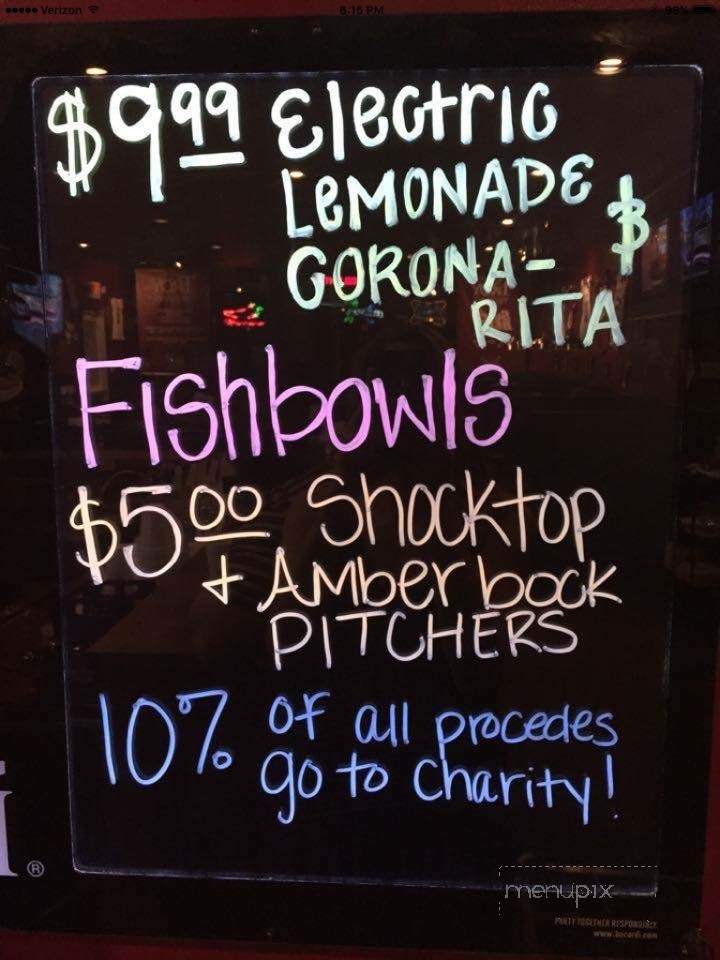 Verizon 6:15 PM 99%
$9.99 Electric
LEMONADE $
CORONA-
RITA
Fishbowls
$5.00 Shocktop
+ AMber bock
PITCHERS
10% of all procedes
go to charity!
®
menupix
PARTY TOGETHER RESPONSIBLY
www.bacardi.com